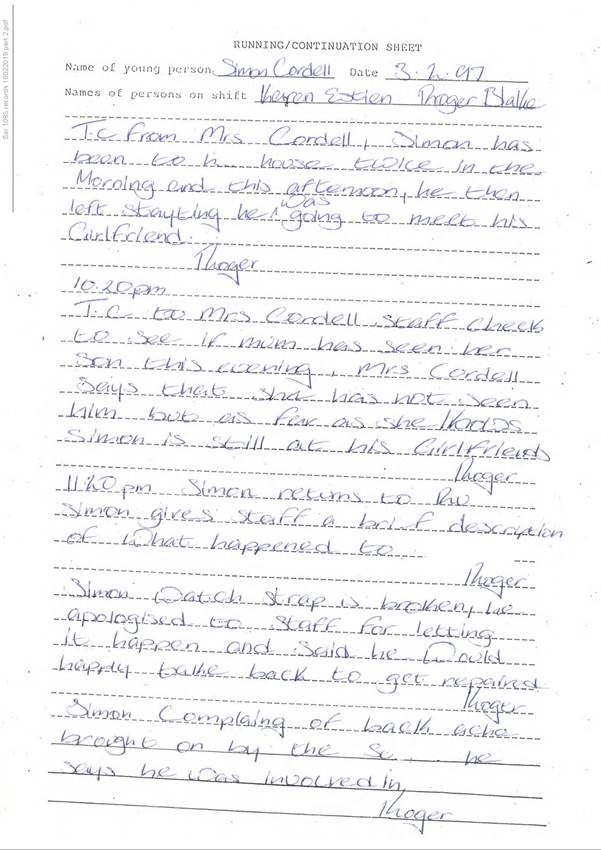 Sar 1085 records 16022019 part 2.pdf
RUNNING/CONTINUATION SHEET
Name of young person Simon Cordell Date 3.2.97
Names of persons on shift Blake
T.c from Mrs Cordell, Simon has
been to h house twice in the
Morning and this afternoon, he then
was
left stayting he going to meet his
Girlfriend.
10.20pm
T.c to Mrs Cordell staff check
to see if mum has seen her
Son this evening, Mrs Cordell
Says that she has not seen
him but as far as she knows
Simon is still at his Girlfriends
11.20pm Simon returns to
Simon gives staff a brief description
of what happened to
Simon Watch strap is broken, he
apologised to staff for letting
it happen and said he would
happly take back to get repaired
Simon Complaing of back ache
brought on by the Sc he
says he was involved in